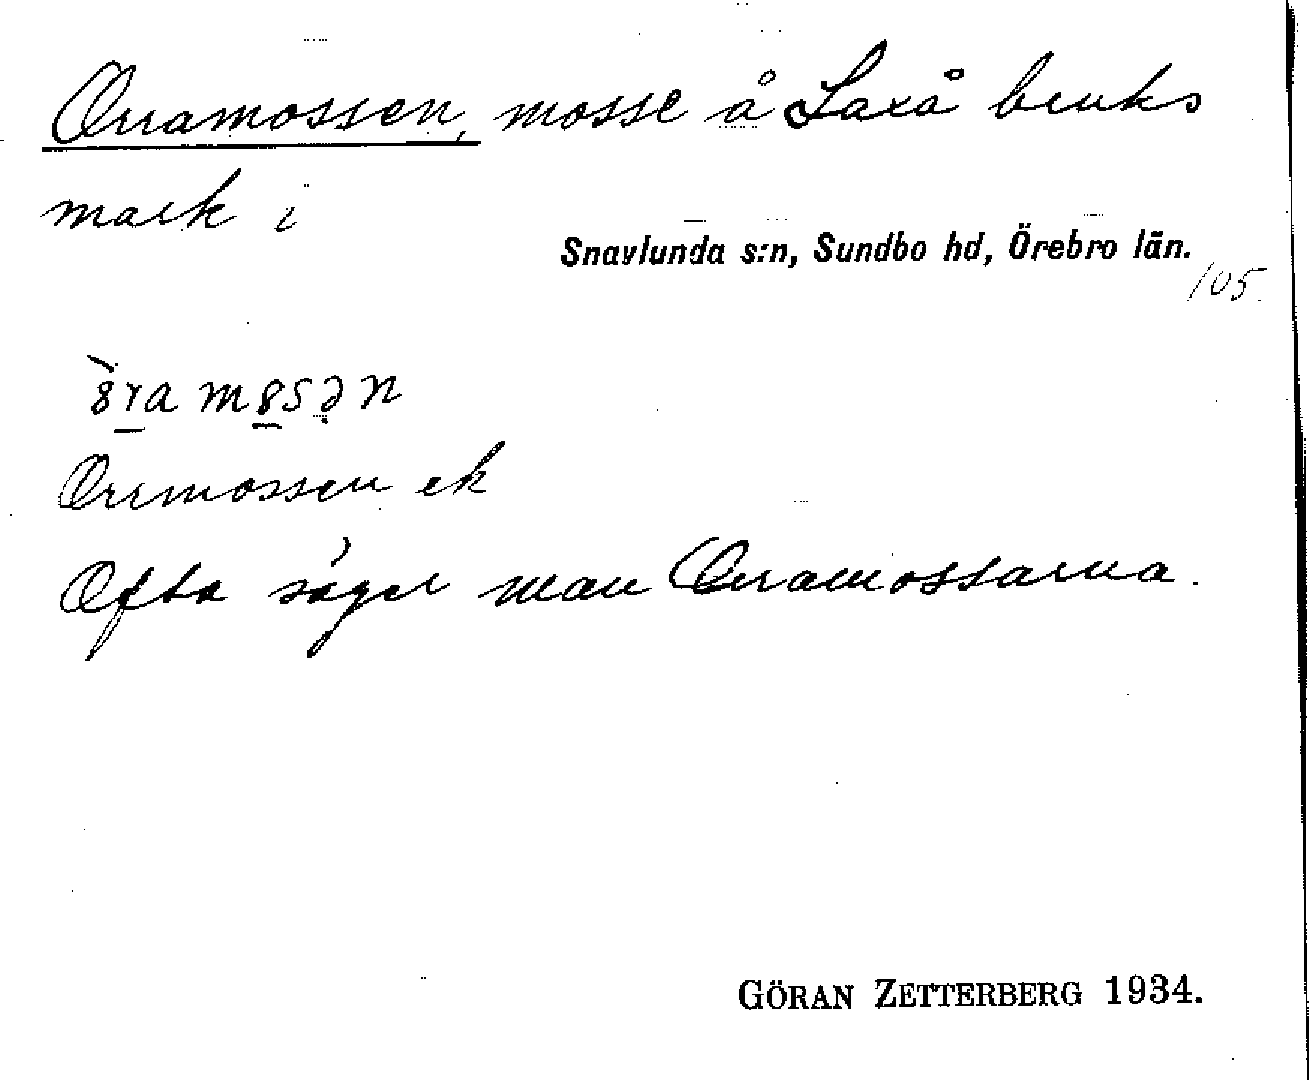 Orramossen, mosse å Laxå bruks
mark i
Snavlunda s:n, Sundbo hd, Örebro län.
105.
Orrmossen ek
Ofta säger man Orramossarna.
GÖRAN ZETTERBERG 1934.